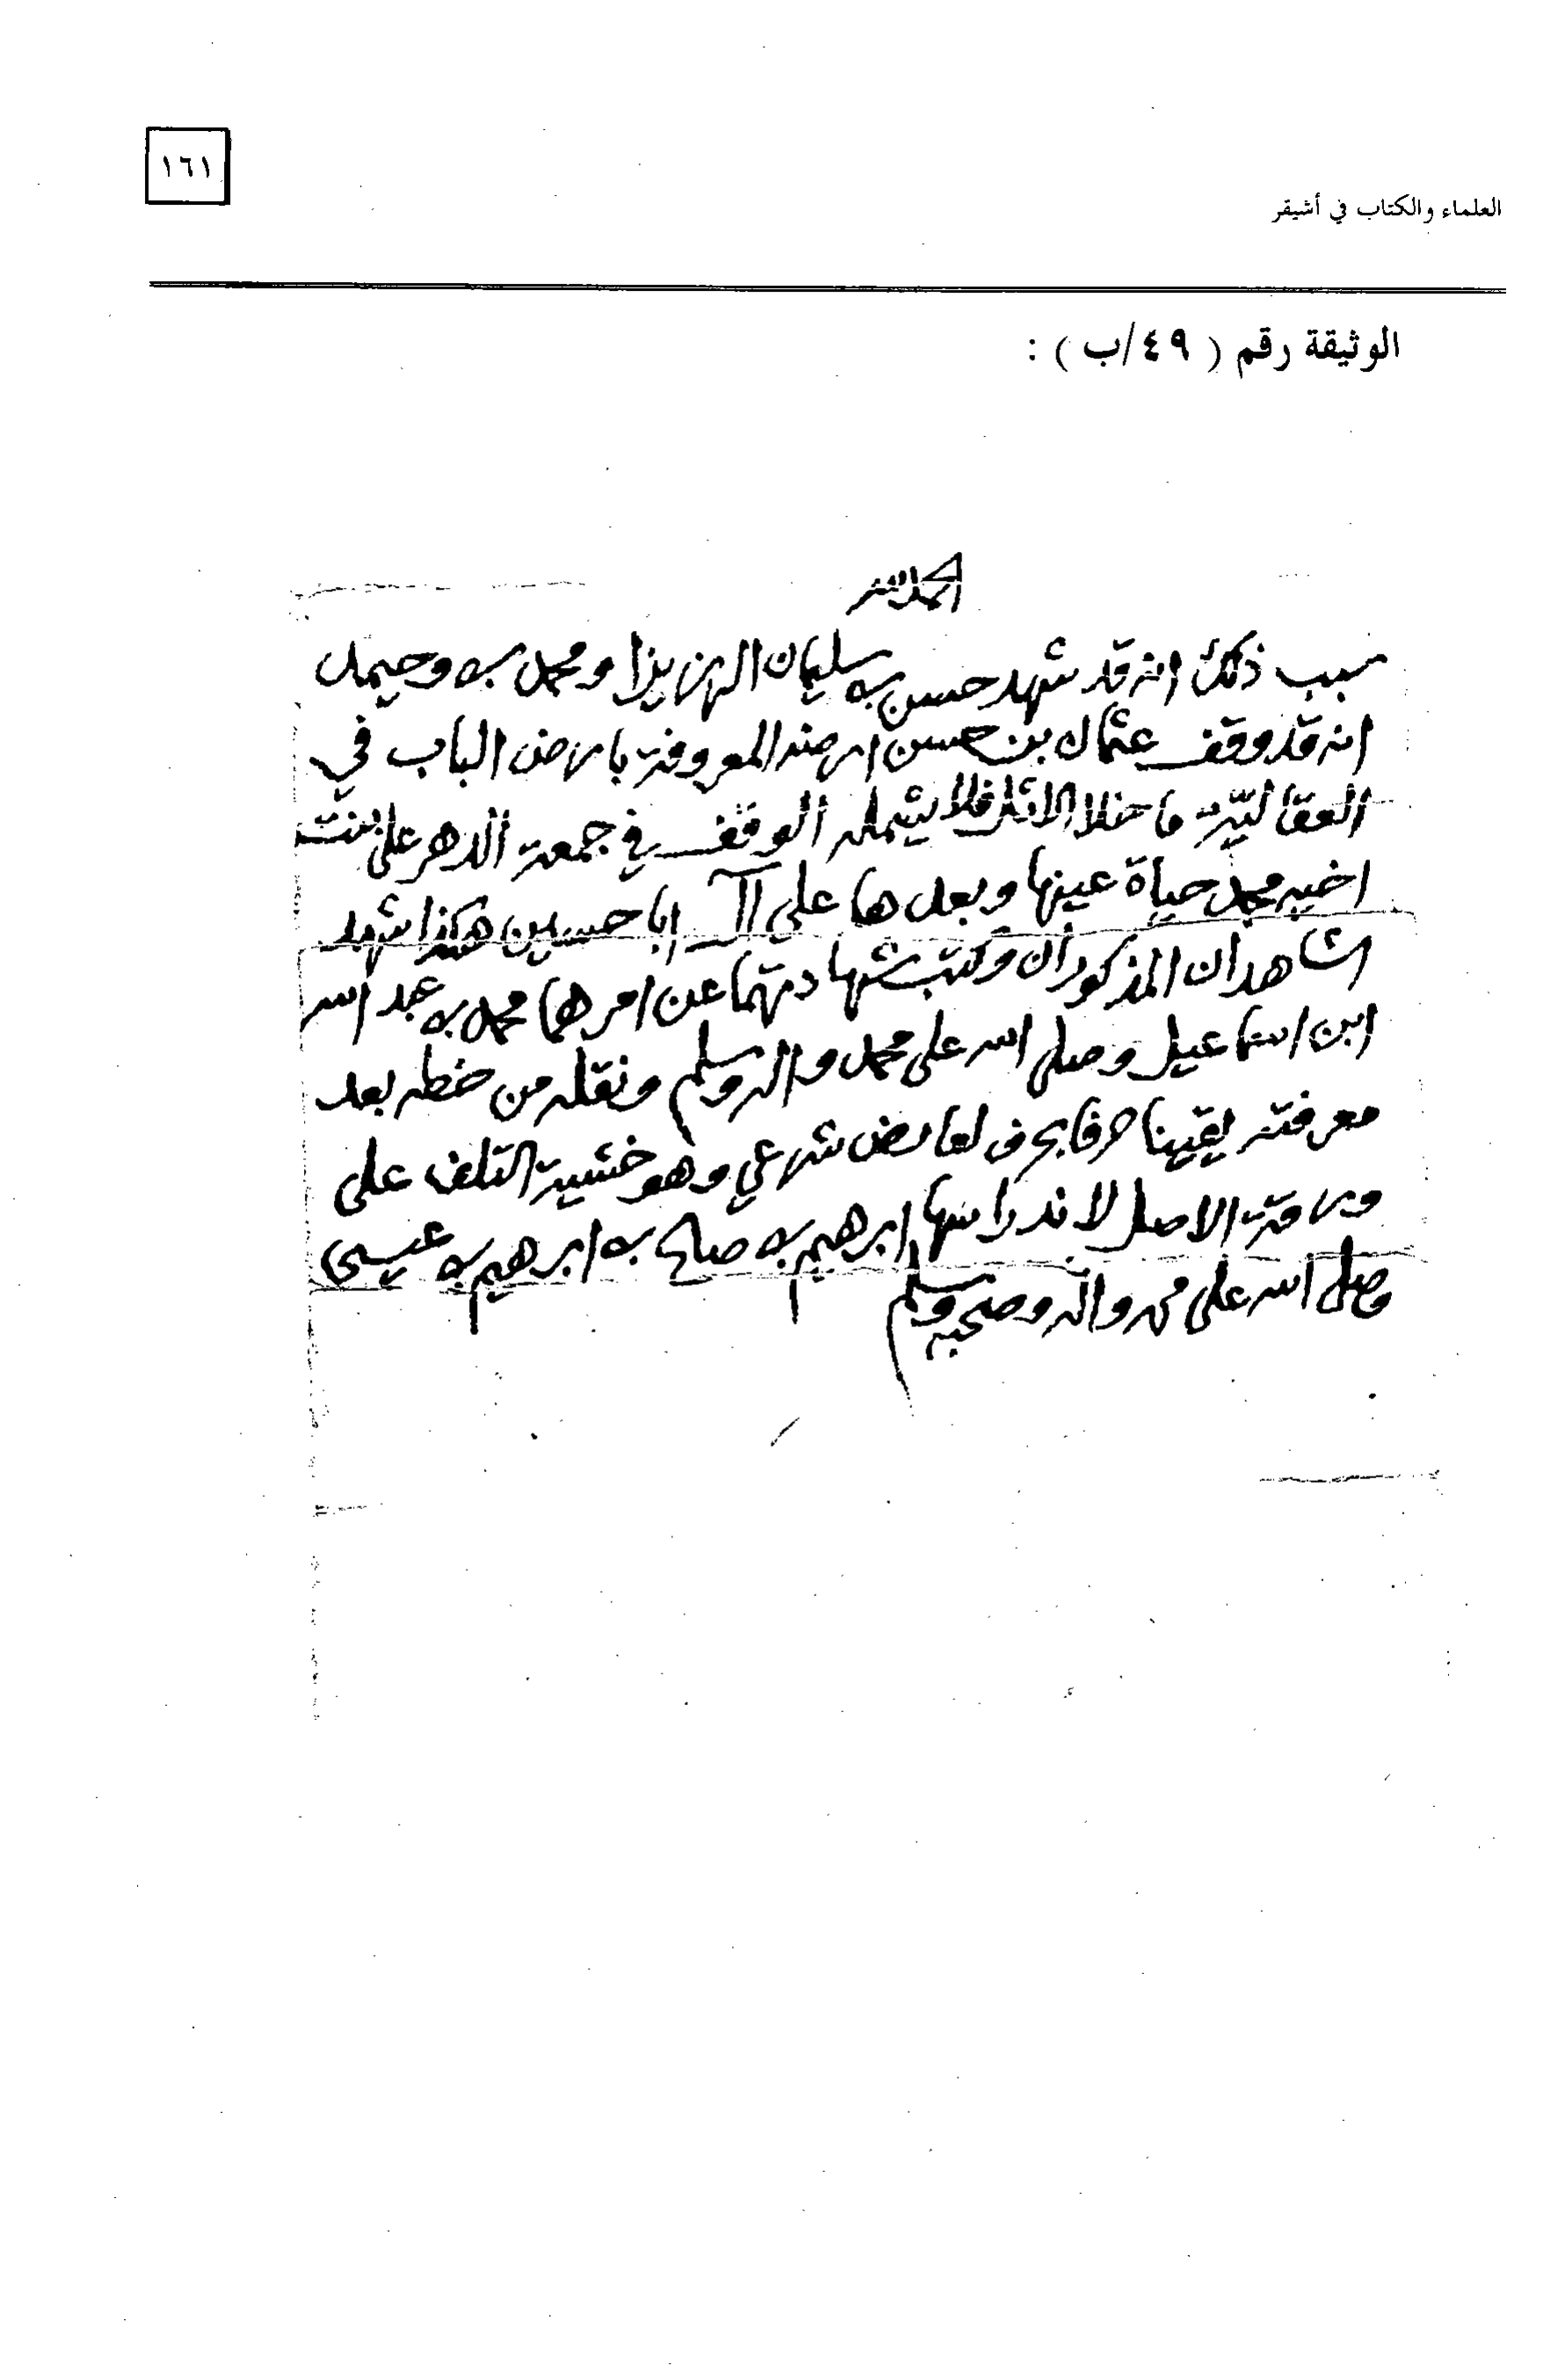 ١٦١
العلماء والكتاب في أشيقر
الوثيقة رقم ( ٤٩/ب ) :
الحمد لله
سبب ذلك انه قد شهد حسن بن سليمان ومحمد بن وحيمد
انه قد وقف عثمان بن حسن ارضه المعروفة بارض الباب في
العقاليّة ما خلا الاثل فلا يشمله الوقف في جمعة الدهر على بنت
اخيه محمد حياة عينها وبعدها على آل ابا حسين هكذا شهد
الشاهدان المذكوران وكتب شهادتهما عن امرهما محمد بن عبد الله
ابن اسماعيل وصلى الله على محمد واله وسلم ونقله من خطه بعد
معرفته يقينا حرفا بحرف لعارض شرعي وهو خشية التلف على
ورقة الاصل لاندراسها ابرهيم بن صالح بن ابرهيم بن عيسى
وصلى الله على محمد واله وصحبه وسلم